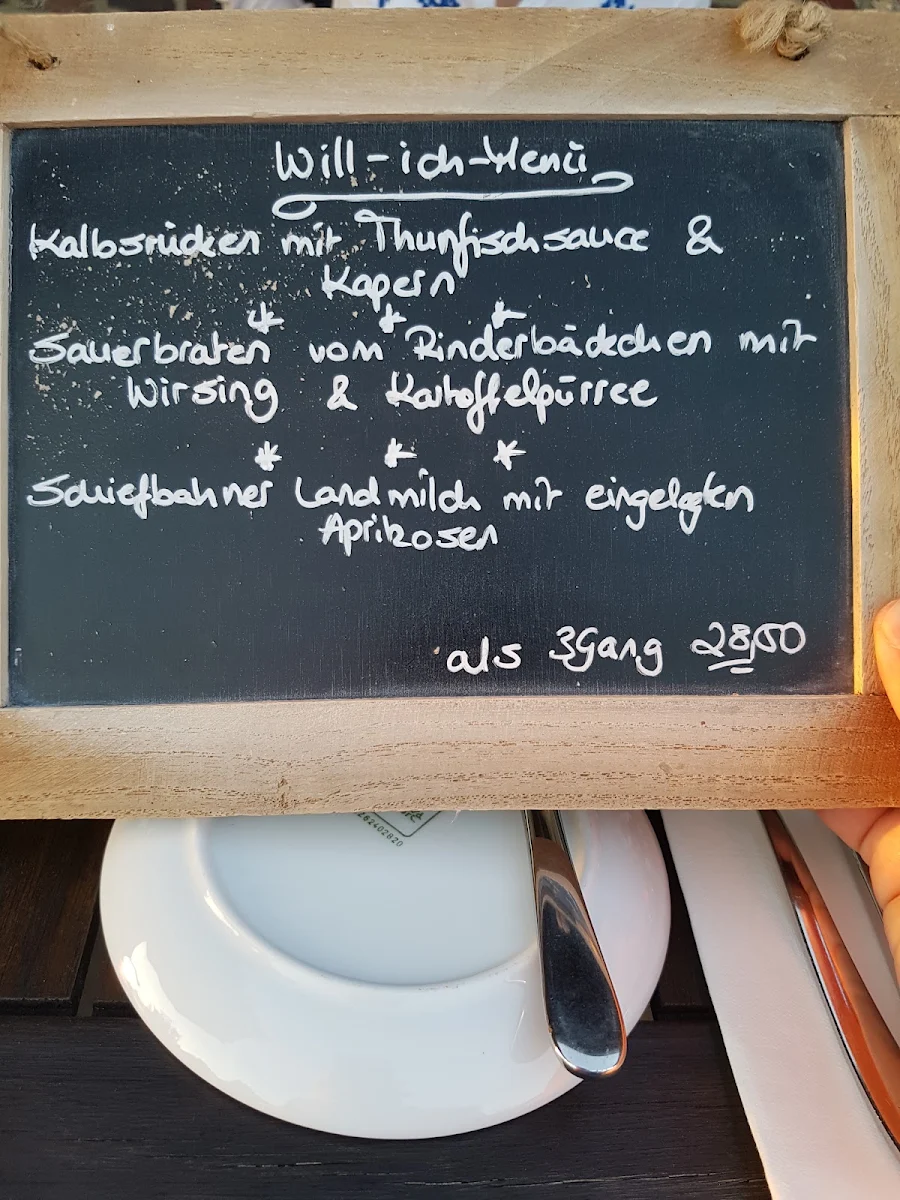 Will-ich-Menü
Kalbsrücken mit Thunfischsauce &
Kapern
* * *
Sauerbraten vom Rinderbäckchen mit
Wirsing & Kartoffelpürree
* * *
Schiefbahner Landmilch mit eingelegten
Aprikosen
als 3Gang 28,50
262402820